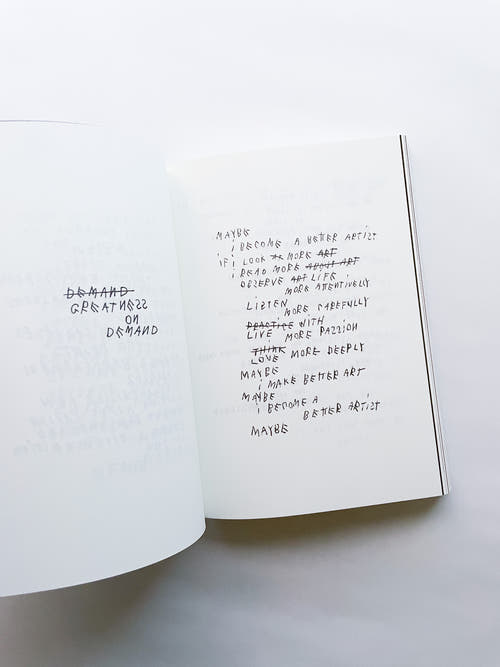 DEMAND
GREATNESS
ON
DEMAND
MAYBE
i BECOME A BETTER ARTiST
iF i LOOK AT MORE ART
i READ MORE ABOUT ART
OBSERVE ART LIFE
MORE ATENTIVELY
LISTEN
MORE CAREFULLY
PRACTICE WITH
LIVE MORE PASSION
THINK
LOVE MORE DEEPLY
MAYBE
i MAKE BETTER ART
MAYBE
i BECOME A
BETTER ARTiST
MAYBE